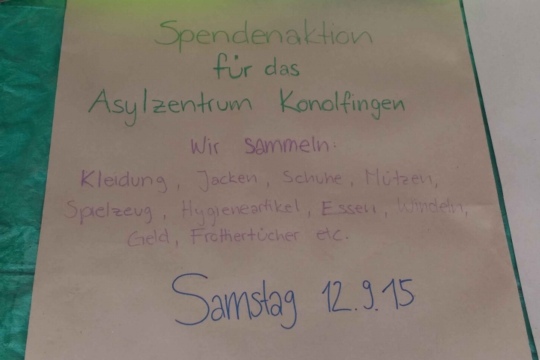 Spendenaktion
für das
Asylzentrum Konolfingen
Wir sammeln:
Kleidung, Jacken, Schuhe, Mützen,
Spielzeug, Hygieneartikel, Essen, Windeln,
Geld, Frottiertücher etc.
Samstag 12.9.15